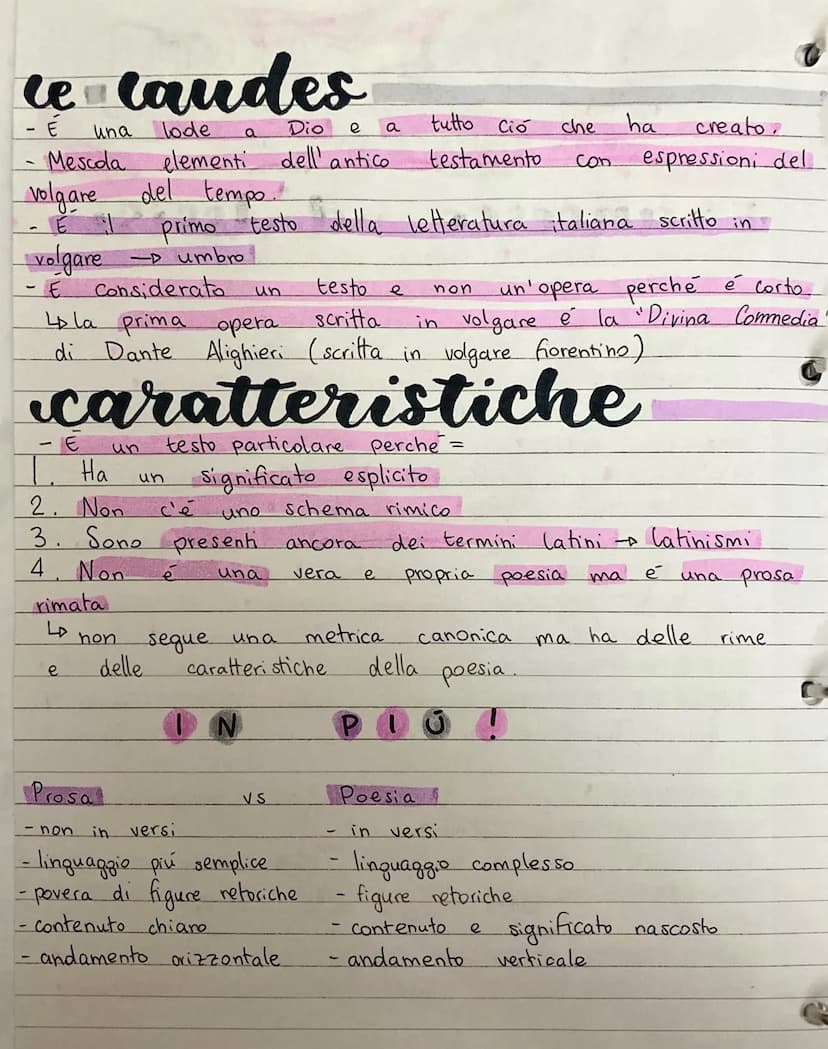 le laudes
- É una lode a Dio e a tutto ció che ha creato.
- Mescola elementi dell'antico testamento con espressioni del
volgare del tempo.
- É il primo testo della letteratura italiana scritto in
volgare → umbro
- É considerato un testo e non un'opera perché é corto
↳ la prima opera scritta in volgare é la "Divina Commedia"
di Dante Alighieri (scritta in volgare fiorentino)
caratteristiche
- É un testo particolare perché =
1. Ha un significato esplicito
2. Non c'é uno schema rimico
3. Sono presenti ancora dei termini latini → latinismi
4. Non é una vera e propria poesia ma é una prosa
rimata
↳ non segue una metrica canonica ma ha delle rime
e delle caratteristiche della poesia.
IN PIÚ!
Prosa vs Poesia
- non in versi - in versi
- linguaggio piú semplice - linguaggio complesso
- povera di figure retoriche - figure retoriche
- contenuto chiaro - contenuto e significato nascosto
- andamento orizzontale - andamento verticale